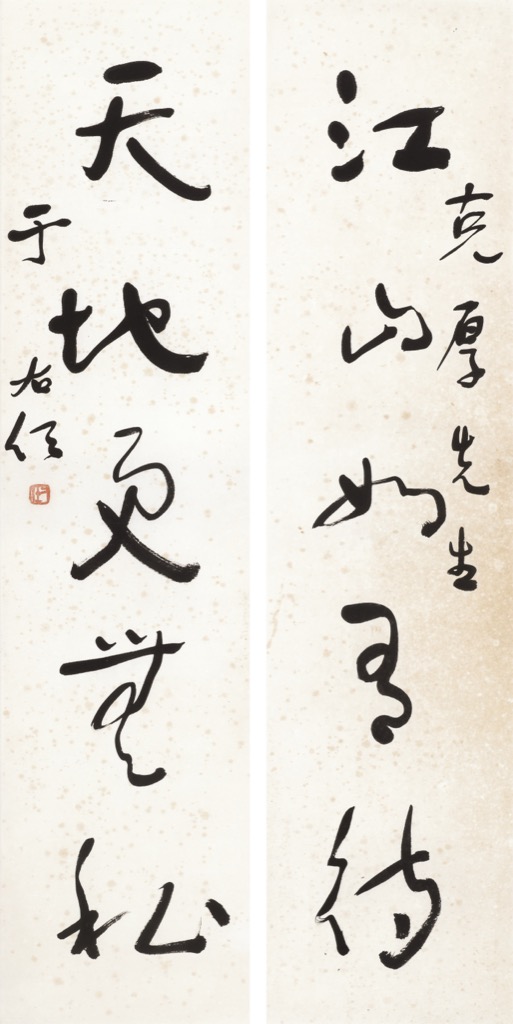 克厚先生
江山如有待
天地更無私
于右任